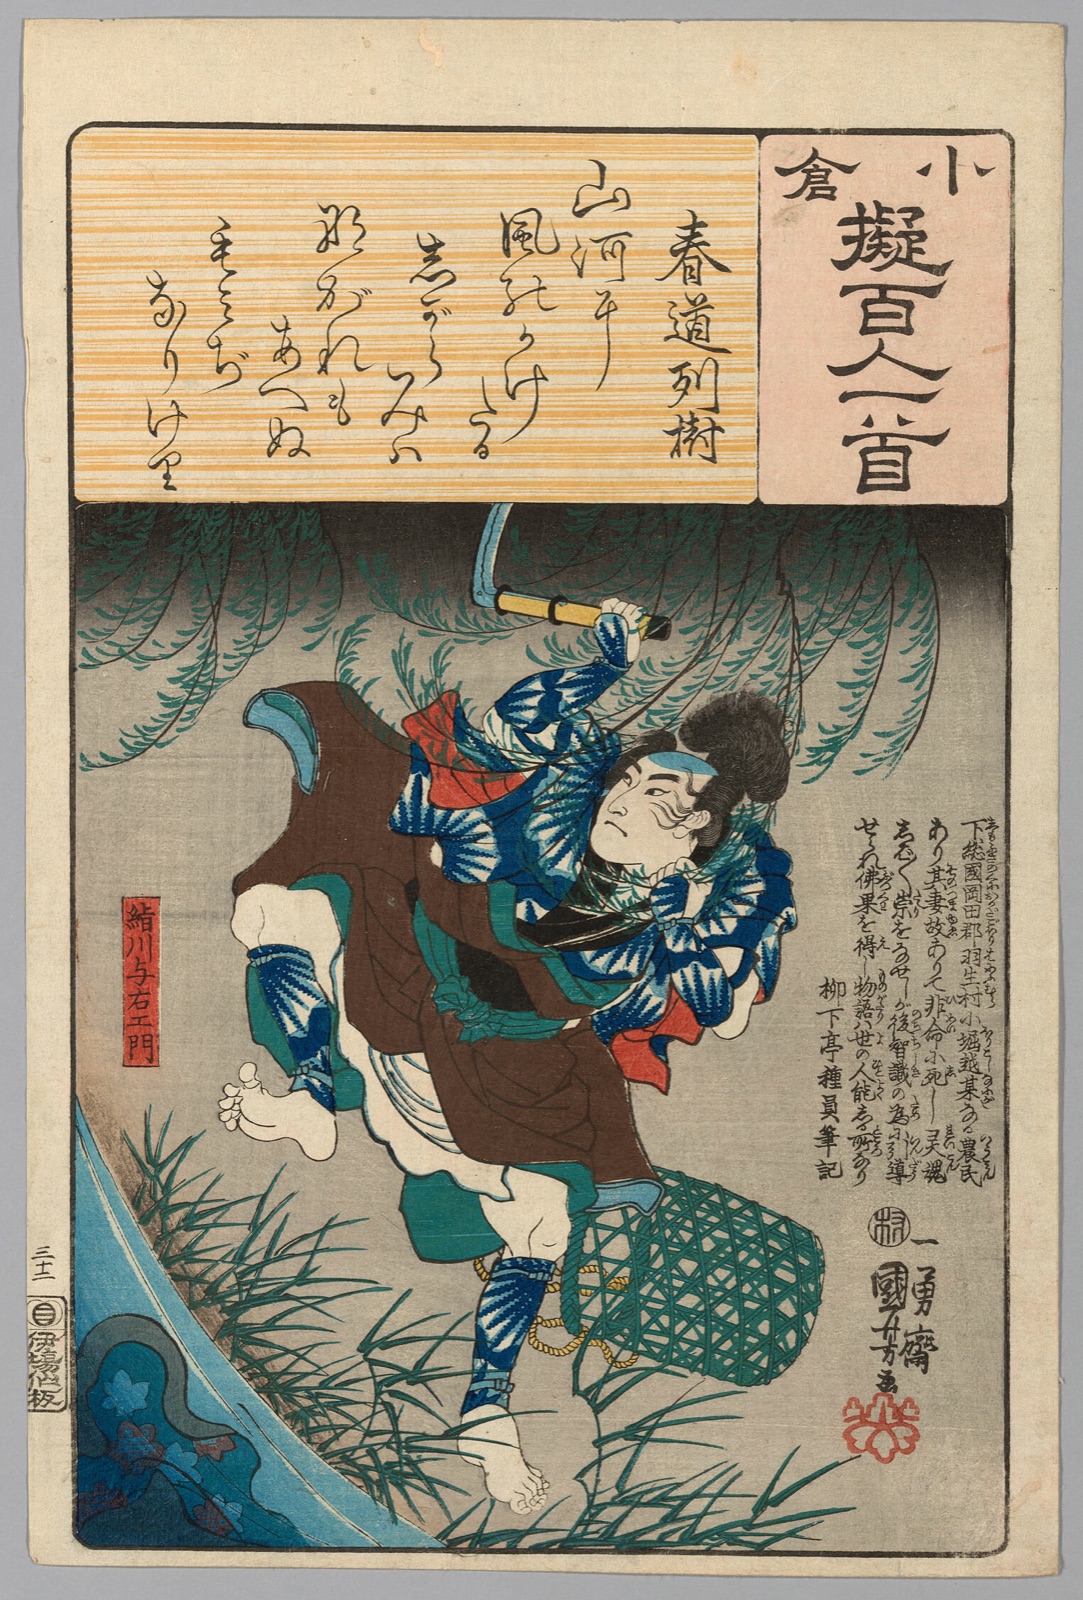 小倉
擬百人一首
春道列樹
山河耳
風能かけ
たる
志がら
みハ
那がれも
あへぬ
毛みぢ
なりけり
下総國岡田郡羽生村小堀越某なる農民
あり其妻故ありて非命に死し灵魂
志ばらく祟をなせしが後智識の為に引導
せられ佛果を得し物語ハ世の人能志る所なり
柳下亭種員筆記
一勇齋
國芳画
鮎川与右エ門
三十二
伊場仙板